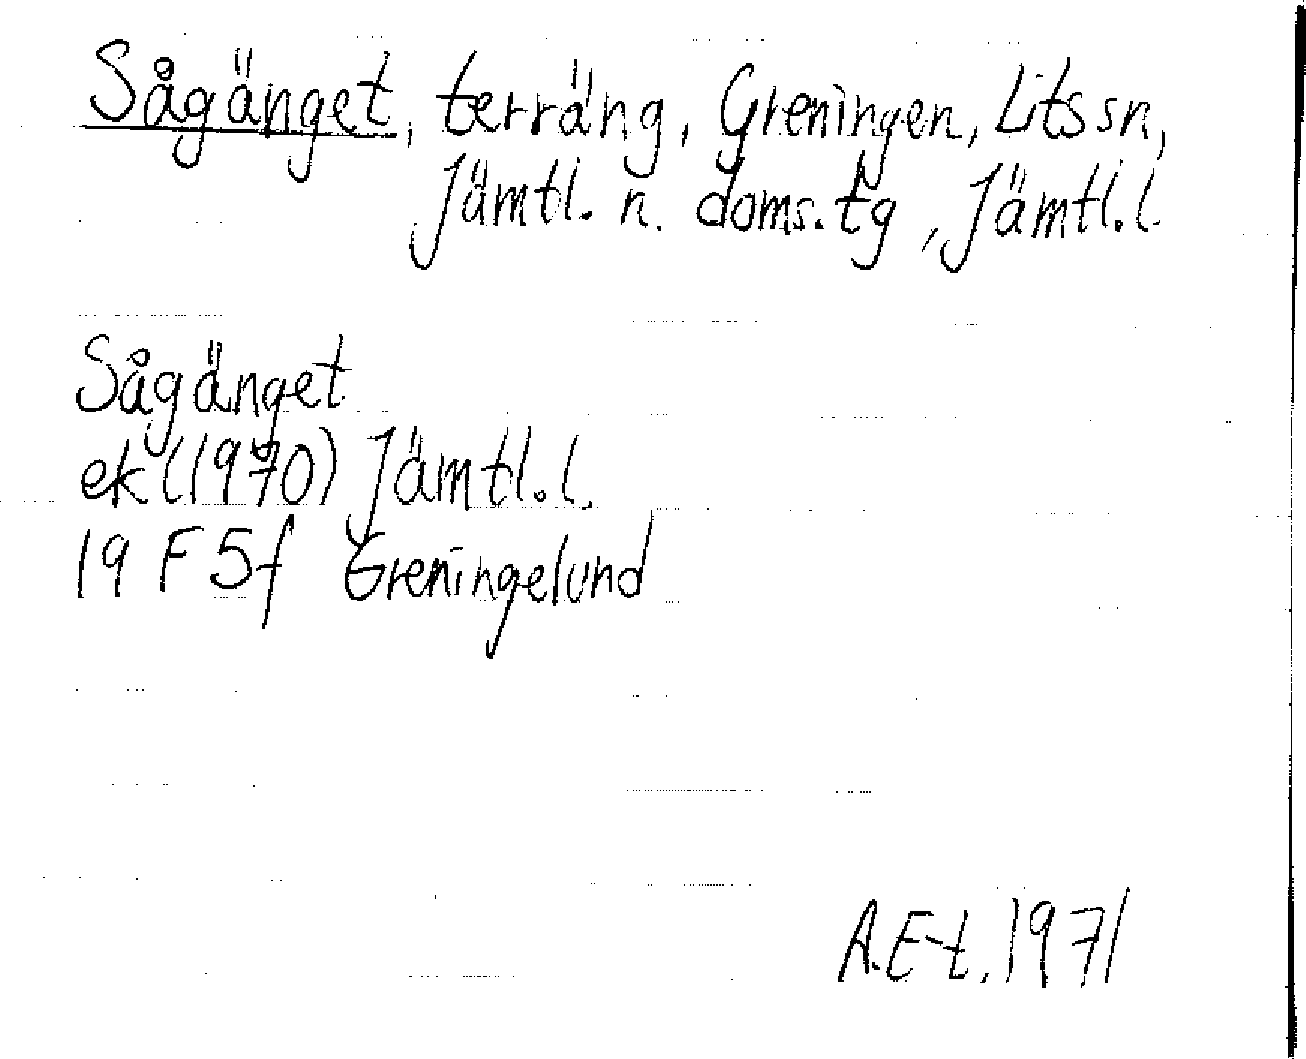 Sågänget, terräng, Greningen, Lits sn,
Jämtl. n. doms.tg, Jämtl.l.
Sågänget
ek (1970) Jämtl.l.
19 F 5f Greningelund
A.E-t. 1971